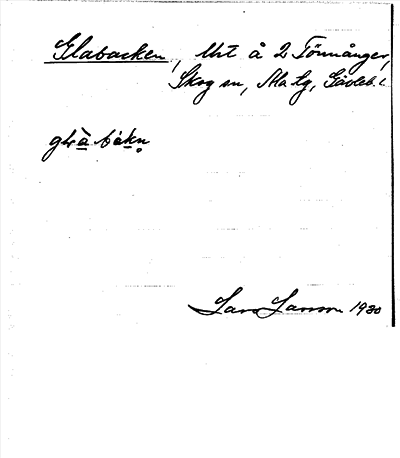 Glabacken, Urt å 2 Tönnånger,
Skog sn, Ala tg, Gävleb. l.
gl̀ʀà bákn̥
Lars Larsson 1930